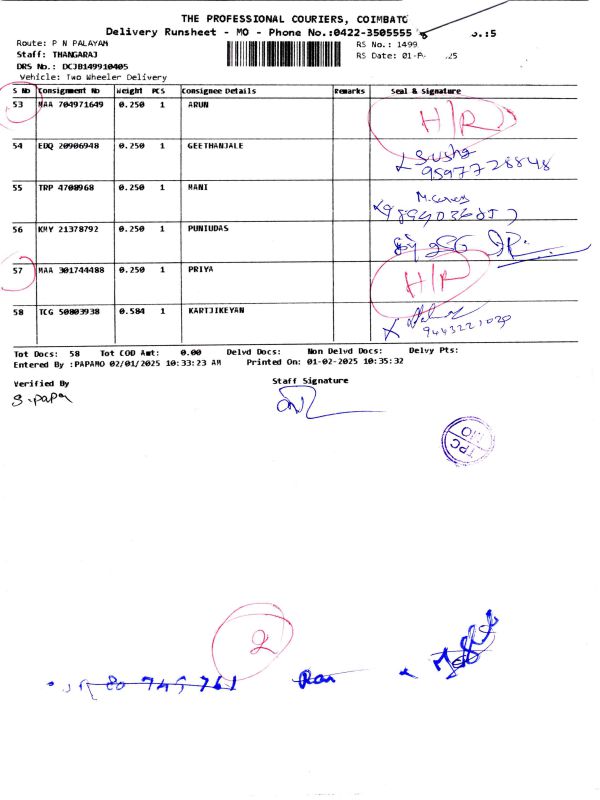 THE PROFESSIONAL COURIERS, COIMBATO
Delivery Runsheet - MO - Phone No.:0422-3505555
Route: P N PALAYAM RS No.: 1499
Staff: THANGARAJ RS Date: 01-F 25
DRS No.: DCJB149910405
Vehicle: Two Wheeler Delivery
S No Consignment No Weight PCS Consignee Details Remarks Seal & Signature
53 MAA 704971649 0.250 1 ARUN H/R
54 EDQ 20906948 0.250 1 GEETHANJALE Susha
9597728848
55 TRP 4708968 0.250 1 MANI
56 KMY 21378792 0.250 1 PUNIUDAS
57 MAA 301744488 0.250 1 PRIYA H/R
58 TCG 50803938 0.584 1 KARTJIKEYAN
9443221029
Tot Docs: 58 Tot COD Amt: 0.00 Delvd Docs: Non Delvd Docs: Delvy Pts:
Entered By :PAPAMO 02/01/2025 10:33:23 AM Printed On: 01-02-2025 10:35:32
Verified By Staff Signature
S.papa
TPC
MO
2
80 745 761